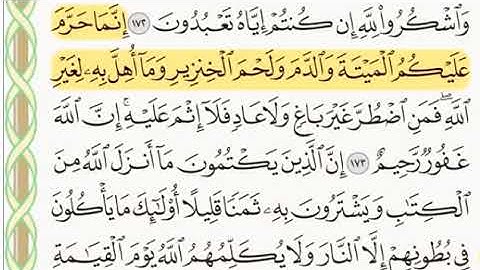 وَٱشْكُرُوا۟ لِلَّهِ إِن كُنتُمْ إِيَّاهُ تَعْبُدُونَ ١٧٢ إِنَّمَا حَرَّمَ
عَلَيْكُمُ ٱلْمَيْتَةَ وَٱلدَّمَ وَلَحْمَ ٱلْخِنزِيرِ وَمَآ أُهِلَّ بِهِۦ لِغَيْرِ
ٱللَّهِۖ فَمَنِ ٱضْطُرَّ غَيْرَ بَاغٍ وَلَا عَادٍ فَلَآ إِثْمَ عَلَيْهِۚ إِنَّ ٱللَّهَ
غَفُورٌ رَّحِيمٌ ١٧٣ إِنَّ ٱلَّذِينَ يَكْتُمُونَ مَآ أَنزَلَ ٱللَّهُ مِنَ
ٱلْكِتَٰبِ وَيَشْتَرُونَ بِهِۦ ثَمَنًا قَلِيلًا أُو۟لَٰٓئِكَ مَا يَأْكُلُونَ
فِى بُطُونِهِمْ إِلَّا ٱلنَّارَ وَلَا يُكَلِّمُهُمُ ٱللَّهُ يَوْمَ ٱلْقِيَٰمَةِ